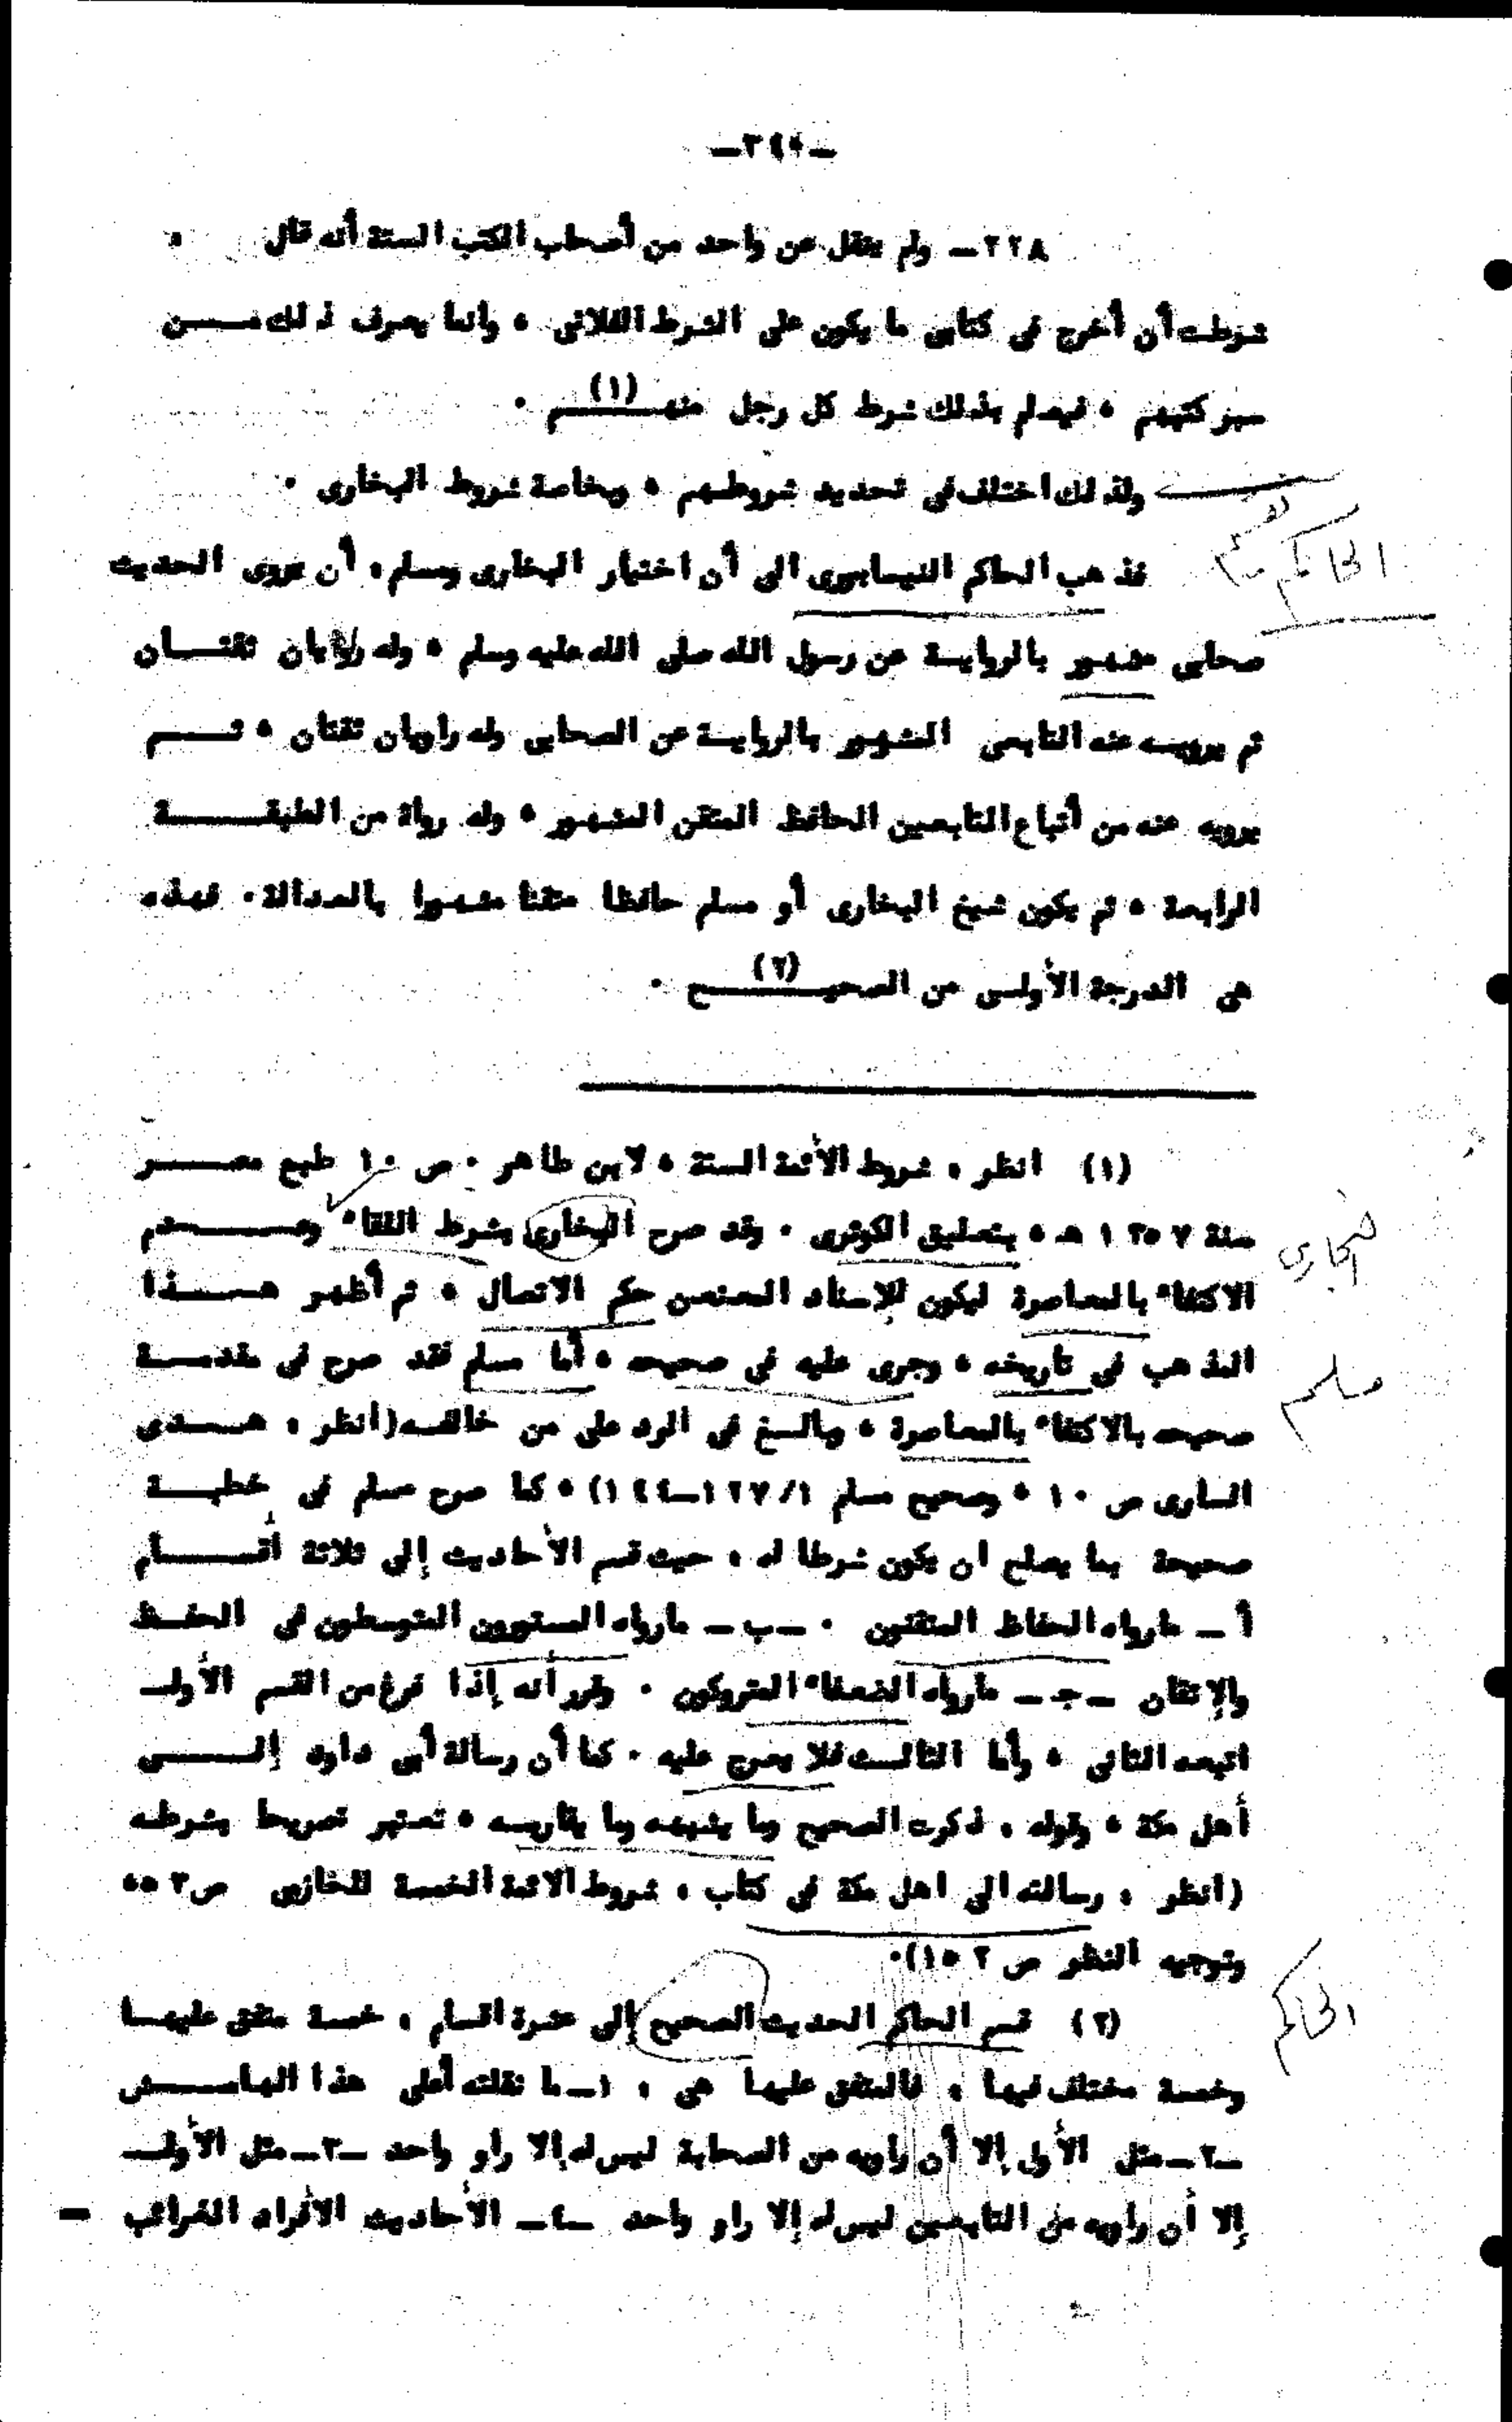 ٢٢٨ـ ولم ينقل عن واحد من أصحاب الكتب الستة أنه قال ،
شرطت أن أخرج في كتابى ما يكون على الشرط الفلانى ، وانما يعرف ذلك مـــن
سبر كتبهم ، فيعلم بذلك شرط كل رجل منهـــم (١) .
ولذلك اختلف في تحديد شروطهم ، وبخاصة شروط البخارى .
الحاكم
فذهب الحاكم النيسابورى الى أن اختيار البخارى ومسلم، أن يروى الحديث
صحابى مشهور بالروايـة عن رسول الله صلى الله عليه وسلم ، وله راويان ثقتـــان
ثم يرويـه عنه التابعى المشهور بالروايـة عن الصحابى وله راويان ثقتان ، ثــــم
يرويه عنه من أتباع التابعين الحافظ المتقن المشهور ، وله رواة من الطبقـــــة
الرابعة ، ثم يكون شيخ البخارى أو مسلم حافظا متقنا مشهورا بالعدالة . فهذه
هى الدرجة الأولـى من الصحيـــح (٢) .
(١) انظر ، شروط الأئمة الستة ، لابن طاهر . ص ١٠ طبع مصـــر
سنة ١٣٥٧ هـ ، بتعليق الكوثرى . وقد صرح البخارى بشرط اللقاء وعـــدم
البخارى
الاكتفاء بالمعاصرة ليكون للإسناد المعنعن حكم الاتصال ، ثم أظهر هـــذا
المذهب في تاريخه ، وجرى عليه في صحيحه ، أما مسلم فقد صرح في مقدمـــة
مسلم
صحيحه بالاكتفاء بالمعاصرة ، وبالـغ في الرد على من خالفـه (انظر ، هـــدى
السارى ص ١٠ ، وصحيح مسلم ١/ ١٢٧ـ١٤٤) ، كما صرح مسلم في خطبـــة
صحيحة بما يصلح ان يكون شرطا له ، حيث قسم الأحاديث إلى ثلاثة أقســـام
أ ـ مارواه الحفاظ المتقنون . ـب ـ مارواه المستورون المتوسطون في الحفـظ
والإتقان ـجـ ـ مارواه الضعفاء المتروكون . وقرر أنه إذا فرغ من القسم الأولـ
اتبعه الثانى ، وأما الثالث فلا يعرج عليه . كما أن رسالة أبى داود إلــــى
أهل مكة ، وقوله ، ذكرت الصحيح وما يشبهه وما يقاربـه ، تعتبر تصريحا بشرطـه
(انظر ، رسالته الى اهل مكة في كتاب ، شروط الائمة الخمسة للحازمى ص٥٣،
وتوجيه النظر ص ١٥٢).
(٢) قسم الحاكم الحديث الصحيح إلى عشرة اقسام ، خمسة متفق عليهـــا
الحاكم
وخمسة مختلف فيها ، فالمتفق عليها هى ، ١ـ ما نقلته أعلى هذا الهامـــش
ـ٢ـ مثل الأول إلا أن راويه من الصحابة ليس له إلا راو واحد ـ٣ـ مثل الأولـ
إلا أن راويه من التابعين ليس له إلا راو واحد ـ٤ـ الأحاديث الافراد الغرائب ـ